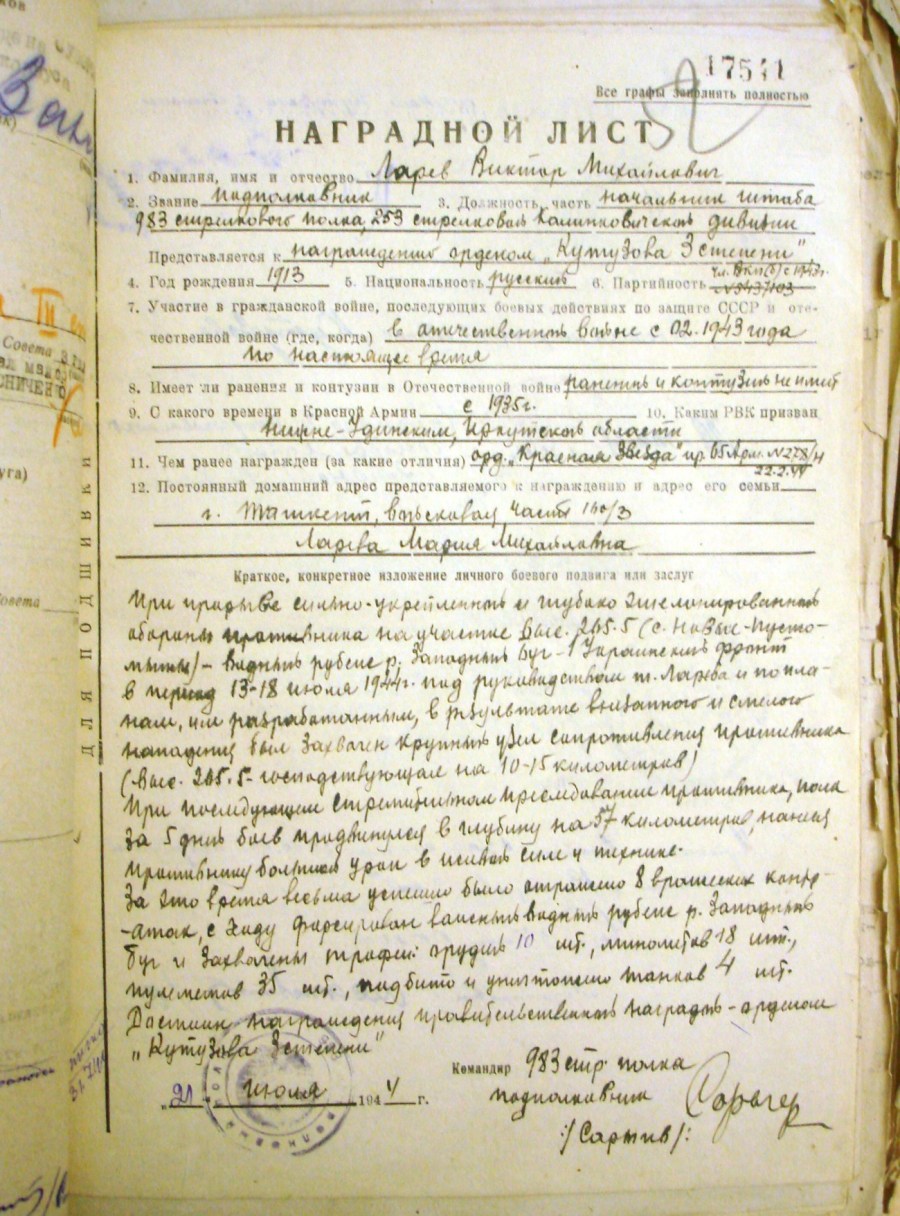 17541
Все графы заполнять полностью
НАГРАДНОЙ ЛИСТ
1. Фамилия, имя и отчество Ларев Виктор Михайлович
2. Звание подполковник 3. Должность, часть начальник штаба
983 стрелкового полка, 253 стрелковой Калинковичской дивизии
Представляется к награждений орденом „Кутузова 3 степени"
чл. ВКП(б) с 1943г.
4. Год рождения 1913 5. Национальность русский 6. Партийность №5437103
7. Участие в гражданской войне, последующих боевых действиях по защите СССР и оте-
чественной войне (где, когда) в отечественной войне с 02.1943 года
по настоящее время
8. Имеет ли ранения и контузии в Отечественной войне ранений и контузий не имеет
9. С какого времени в Красной Армии с 1935г. 10. Каким РВК призван
Нижне-Удинским, Иркутской области
11. Чем ранее награжден (за какие отличия) орд. „Красная Звезда" пр. 65 Арм. №278/н
22.2.44
12. Постоянный домашний адрес представляемого к награждению и адрес его семьи
г. Ташкент, войсковая часть
Ларева Мария Михайловна
Краткое, конкретное изложение личного боевого подвига или заслуг
При прорыве сильно-укрепленной и глубоко эшелонированной
обороны противника на участке Выс. 265.5 (с. Новые-Пусто-
мыты) – водный рубеж р. Западный Буг – 1 Украинский фронт
в период 13-18 июля 1944г. под руководством т. Ларева и по пла-
нам, им разработанным, в результате внезапного и смелого
нападения был захвачен крупный узел сопротивления противника
(Выс. 265.5 – господствующая на 10-15 километров)
При последующем стремительном преследовании противника, полк
за 5 дней боев продвинулся в глубину на 57 километров, нанеся
противнику большой урон в живой силе и технике.
За это время весьма успешно было отражено 8 вражеских контр-
-атак, с ходу форсирован важный водный рубеж р. Западный
Буг и захвачены трофеи: орудий 10 шт., минометов 18 шт.,
пулеметов 35 шт., подбито и уничтожено танков 4 шт.
Достоин награждения правительственной наградой – орденом
„Кутузова 3 степени"
Командир 983 стр. полка
„21" июля 1944 г. подполковник
/Сартив/:
ДЛЯ ПОДШИВКИ